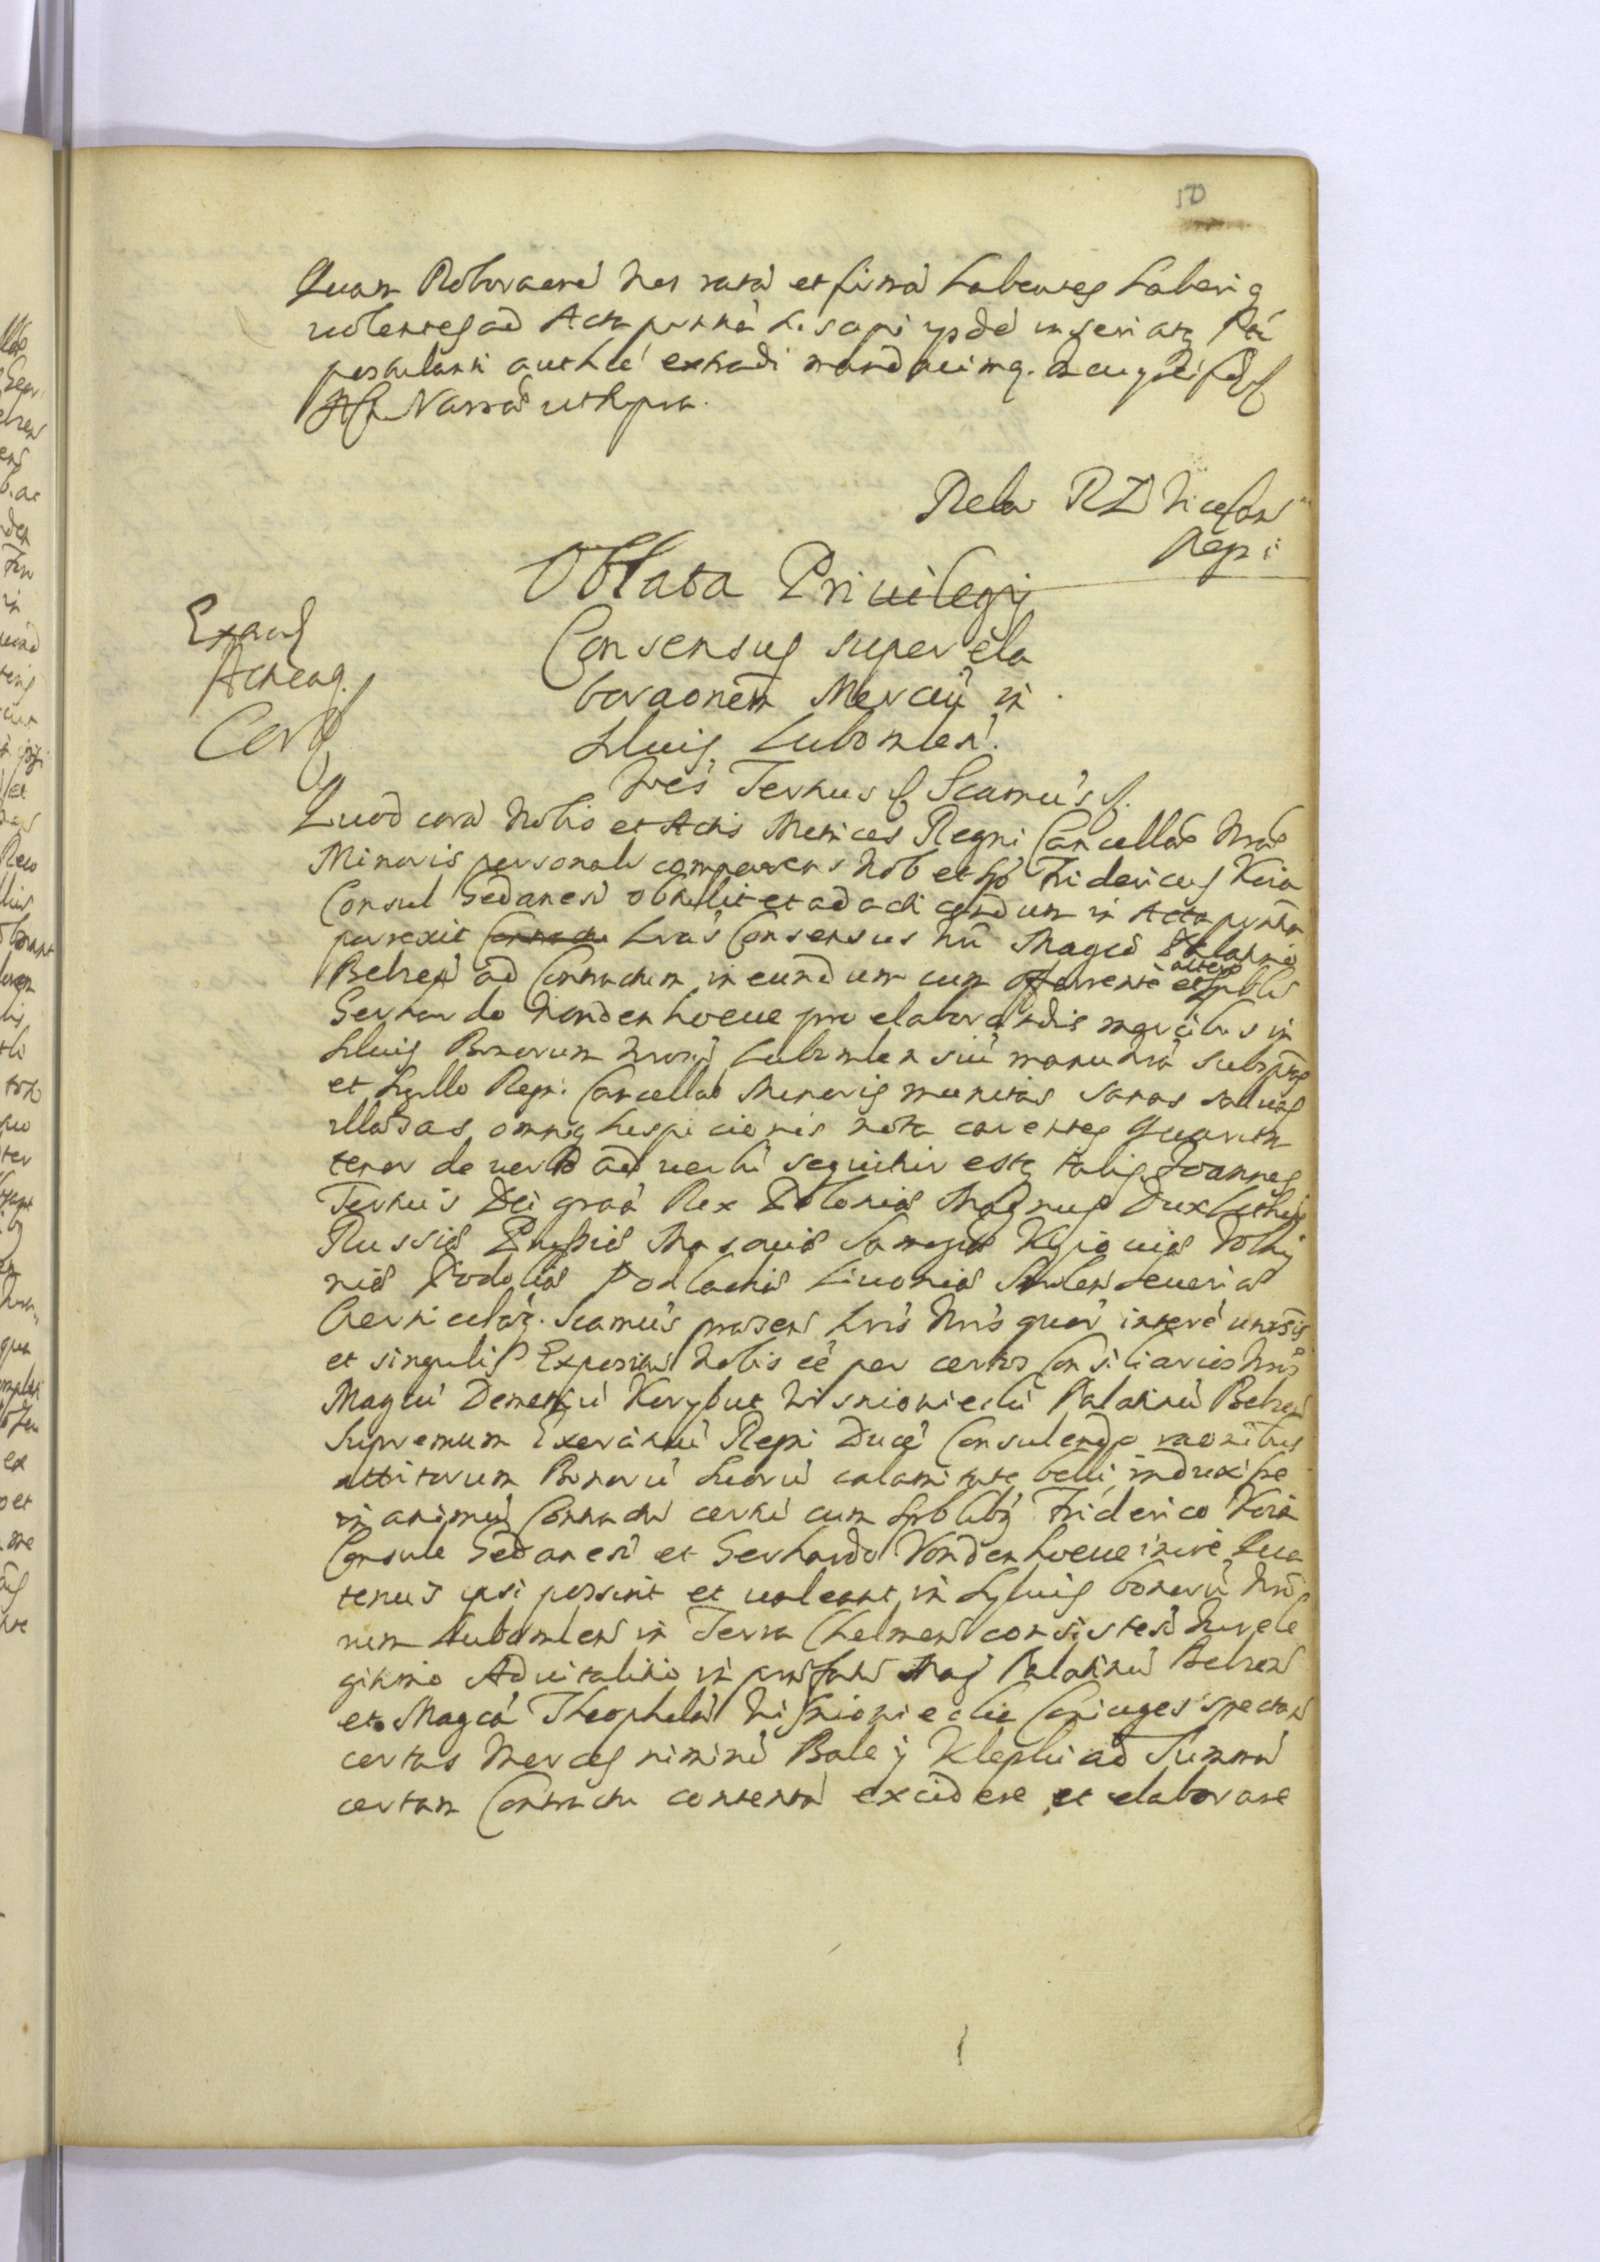 50
Quam Roboraoné Nos ratá et firmá habentes haberiq
volentes ad Acta pnntiá suscipi ysdé inseri atq Pti
postulanti authcé extradi mandauimq. In cuyus rei fidé
Datt Varsa ut supra.
Rela RD Vicecan
Regni
Oblata Priuilegij
Consensus super ela
boraonem Merciú in
Sluis Lubomlen.
Exaud
Acticaq.
Cor
Joés Tertius Scamús
Quod corá Nobis et Actis Metrices Regni Cancellae Nrae
Minoris personalr comparens Nob et Sp Fridericus Keia
Consul Gedanesi obtulit et ad acti candum in Acta pnntia
porrexit Lras Consensus Nri Magco Palatino
Belzen ad Contractum ineundum cum offerente et altero Spbli
Gerhardo Vondenhoeue pro elaborandis mercibus in
Sluis Bonorum Nrorú Lubomlensiú manu Nrá Subsptas
et Sigillo Regni Cancellae Minoris munitas Sanas saluas
illaesas omniq suspicionis nota carentes Quarum
tenor de verbo ad verbú sequitur estq talis. Joannes
Tertius Dei graá Rex Poloniae Magnus Dux Lithuae
Russiae Prussiae Masouiae Samogae Kyiouiae Volhy
niae Podoliae Podlachiae Liuoniae Smolen Seueriae
Czernicouiaeq. Scamús praesen Lris Nris quor interé uniusis
et singulis Expositu Nobis eé per certos Consiliarios Nros
Magcú Demetriú Korybut Wisniowieckú Palatinú Belzen
Supremum Exercituú Regni Ducé Consulendo raonibus
attritorum Bonorú suorú calamitate belli induxisse
in animú Contractú certú cum Spblibq Friderico Keia
Consule Gedanesi et Gerhardo Vondenhoeue inire Qua
tenus ipsi possint et valeant in Syluis bonorú Nro
rum Lubomlen in Terra Chelmen consisten Iure le
gitimo Aduitalitio in praefatú Mag Palatinú Belzen
et Magcá Theophilá Wisniowiecka Coniuges spectan
certas Merces nimirú Bale y Klepki ad Summá
certam Contractu contentá excidere et elaborare